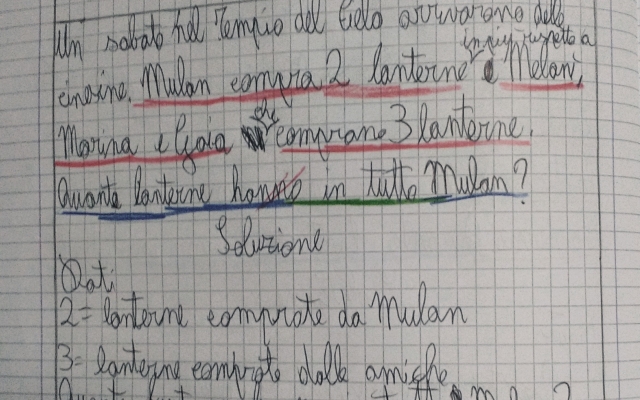 Un sabato nel Tempio del Cielo arrivarono delle
in più rispetto a
cinesine. Mulan compra 2 lanterne Melani,
che
Marina e Gaia comprano 3 lanterne.
Quante lanterne hanno in tutto Mulan?
Soluzione
Dati
2= lanterne comprate da Mulan
3= lanterne comprate dalle amiche